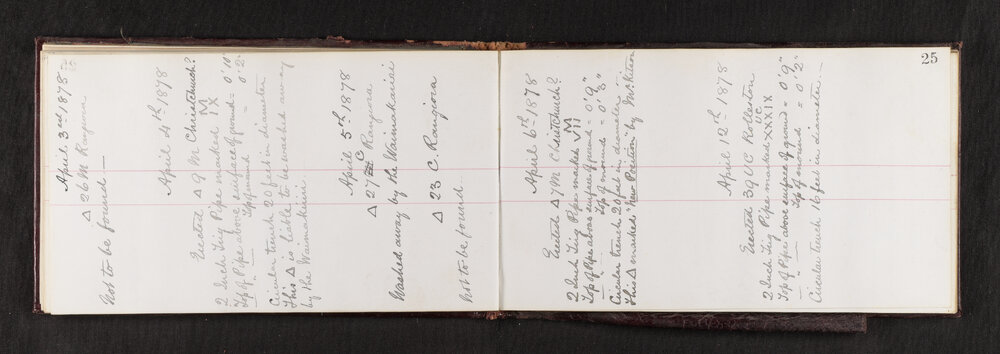 April 3rd 1878
Δ 26 M Rangiora
Not to be found —
April 4th 1878
Erected Δ 9 M Christchurch?
2 Inch Trig Pipe marked M IX
Top of Pipe above surface of ground = 0'10"
" " " Top of mound = 0.2"
Circular trench 20 feet in diameter
This Δ is liable to be washed away
by the Waimakariri.
April 5th 1878
Δ 27 C Rangiora
Washed away by the Waimakariri
Δ 23 C. Rangiora
Not to be found
25
April 6th 1878
Erected Δ 7 M Christchurch?
2 Inch Trig Pipe marked M VII
Top of Pipe above surface of ground = 0'9"
" " " Top of mound = 0'3"
Circular trench 20 feet in diameter
This Δ marked "New Position" by Mr Kitson
April 12th 1878
Erected 39 UC Rolleston
2 Inch Trig Pipe marked UC XXXIX
Top of Pipe above surface of ground = 0'9"
" " " Top of mound = 0'2"
Circular trench 16 feet in diameter